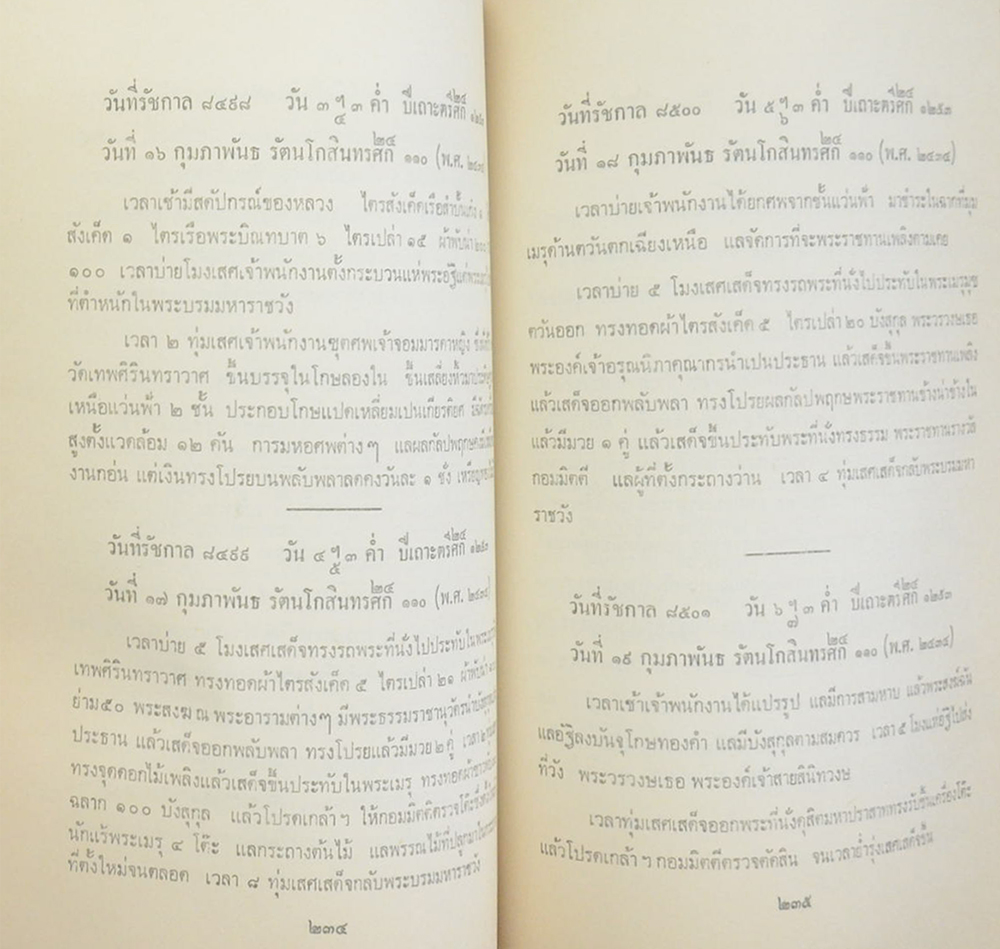 วันที่รัชกาล ๘๔๙๘ วัน ๓ ฯ๔ ๓ ค่ำ ปีเถาะตรีศก ๒๔ ๑๒๕๓
วันที่ ๑๖ กุมภาพันธ รัตนโกสินทรศก ๒๔ ๑๑๐ (พ.ศ. ๒๔๓๔)
เวลาเช้ามีสดัปกรณ์ของหลวง ไตรสังเค็ดเรือ ๑
สังเค็ด ๑ ไตรเรือพระบิณฑบาต ๖ ไตรเปล่า ๑๕ ผ้าพับ
๑๐๐ เวลาบ่ายโมงเสศเจ้าพนักงานตั้งกระบวนแห่พระอัฐิ
ที่ตำหนักในพระบรมมหาราชวัง
เวลา ๒ ทุ่มเสศเจ้าพนักงานขุดศพเจ้าจอมมารดาหญิง
วัดเทพศิรินทราวาศ ขึ้นบรรจุในโกษลองใน ขึ้นเสลี่ยง
เหนือแว่นฟ้า ๒ ชั้น ประกอบโกษแปดเหลี่ยมเปนเกียรติยศ
สูงตั้งแวดล้อม ๑๒ คัน การมหอศพต่างๆ แลผลกัลปพฤกษ
งานก่อน แต่เงินทรงโปรยบนพลับพลาลดลงวันละ ๑ ชั่ง
วันที่รัชกาล ๘๔๙๙ วัน ๔ ฯ๕ ๓ ค่ำ ปีเถาะตรีศก ๒๔ ๑๒๕๓
วันที่ ๑๗ กุมภาพันธ รัตนโกสินทรศก ๒๔ ๑๑๐ (พ.ศ. ๒๔๓๔)
เวลาบ่าย ๕ โมงเสศเสด็จทรงรถพระที่นั่งไปประทับใน
เทพศิรินทราวาศ ทรงทอดผ้าไตรสังเค็ด ๕ ไตรเปล่า ๒๑ ผ้าพับ
ย่าม๕๐ พระสงฆ ณ พระอารามต่างๆ มีพระธรรมราชานุวัตร
ประธาน แล้วเสด็จออกพลับพลา ทรงโปรยแล้วมีมวย ๒ คู่ เวลา
ทรงจุดดอกไม้เพลิงแล้วเสด็จขึ้นประทับในพระเมรุ ทรงทอดผ้าขาว
ฉลาก ๑๐๐ บังสุกุล แล้วโปรดเกล้าฯ ให้กอมมิตตีตรวจโต๊ะ
นักแร้พระเมรุ ๔ โต๊ะ แลกระถางต้นไม้ แลพรรณไม้ที่ปลูก
ที่ตั้งใหม่จนตลอด เวลา ๘ ทุ่มเสศเสด็จกลับพระบรมมหาราชวัง
๒๓๔
วันที่รัชกาล ๘๕๐๐ วัน ๕ ฯ๖ ๓ ค่ำ ปีเถาะตรีศก ๒๔ ๑๒๕๓
วันที่ ๑๘ กุมภาพันธ รัตนโกสินทรศก ๒๔ ๑๑๐ (พ.ศ. ๒๔๓๔)
เวลาบ่ายเจ้าพนักงานได้ยกศพจากชั้นแว่นฟ้า มาชำระในฉากที่มุม
เมรุด้านตวันตกเฉียงเหนือ แลจัดการที่จะพระราชทานเพลิงตามเคย
เวลาบ่าย ๕ โมงเสศเสด็จทรงรถพระที่นั่งไปประทับในพระเมรุมุข
ตวันออก ทรงทอดผ้าไตรสังเค็ด ๕ ไตรเปล่า ๒๐ บังสุกุล พระวรวงษเธอ
พระองค์เจ้าอรุณนิภาคุณากรนำเปนประธาน แล้วเสด็จขึ้นพระราชทานเพลิง
แล้วเสด็จออกพลับพลา ทรงโปรยผลกัลปพฤกษพระราชทานข้างน่าข้างใน
แล้วมีมวย ๑ คู่ แล้วเสด็จขึ้นประทับพระที่นั่งทรงธรรม พระราชทานรางวัล
กอมมิตตี แลผู้ที่ตั้งกระถางว่าน เวลา ๔ ทุ่มเสศเสด็จกลับพระบรมมหา
ราชวัง
วันที่รัชกาล ๘๕๐๑ วัน ๖ ฯ๗ ๓ ค่ำ ปีเถาะตรีศก ๒๔ ๑๒๕๓
วันที่ ๑๙ กุมภาพันธ รัตนโกสินทรศก ๒๔ ๑๑๐ (พ.ศ. ๒๔๓๔)
เวลาเช้าเจ้าพนักงานได้แปรรูป แลมีการสามหาบ แล้วพระสงฆ์ฉัน
แลอัฐิลงบันจุโกษทองคำ แลมีบังสุกุลตามสมควร เวลา ๕ โมงแห่อัฐิไปส่ง
ที่วัง พระวรวงษเธอ พระองค์เจ้าสายสนิทวงษ
เวลาทุ่มเสศเสด็จออกพระที่นั่งดุสิตมหาปราสาททรงรับชิ้นเครื่องโต๊ะ
แล้วโปรดเกล้าฯ กอมมิตตีตรวจตัดสิน จนเวลาย่ำรุ่งเสศเสด็จขึ้น
๒๓๕